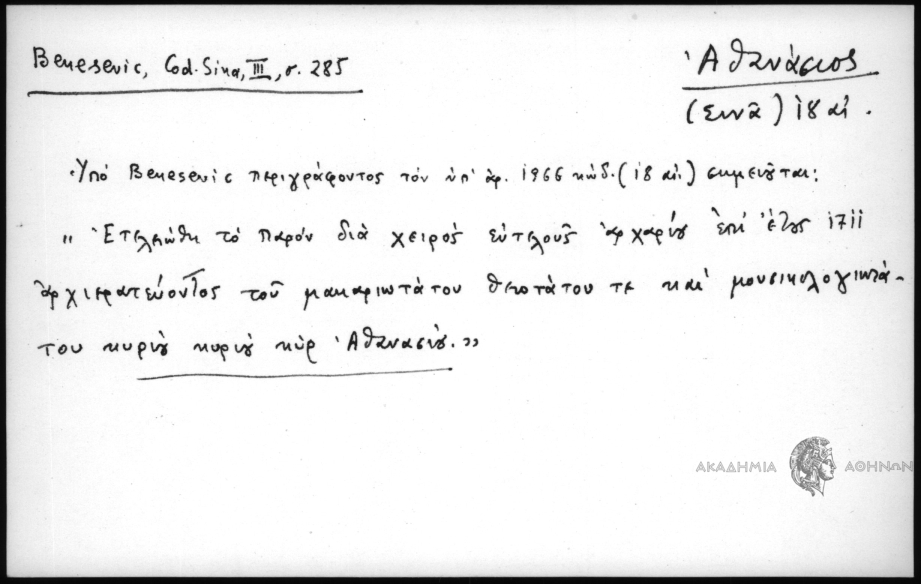 Benesevic, Cod. Sina, III, σ. 285
Ἀθανάσιος
(Σινᾶ) 18 αἰ.
Ὑπό Benesevic περιγράφοντος τόν ὑπ' ἀρ. 1966 κώδ. (18 αἰ.) σημειοῦται:
" Ἐτελειώθη τό παρόν διά χειρός εὐτελοῦς ἀρχαρίου ἐπί ἔτους 1711
ἀρχιερατεύοντος τοῦ μακαριωτάτου θειοτάτου τε καί μουσικολογιωτά-
του κυρίου κυρίου κύρ Ἀθανασίου."
ΑΚΑΔΗΜΙΑ ΑΘΗΝΩΝ